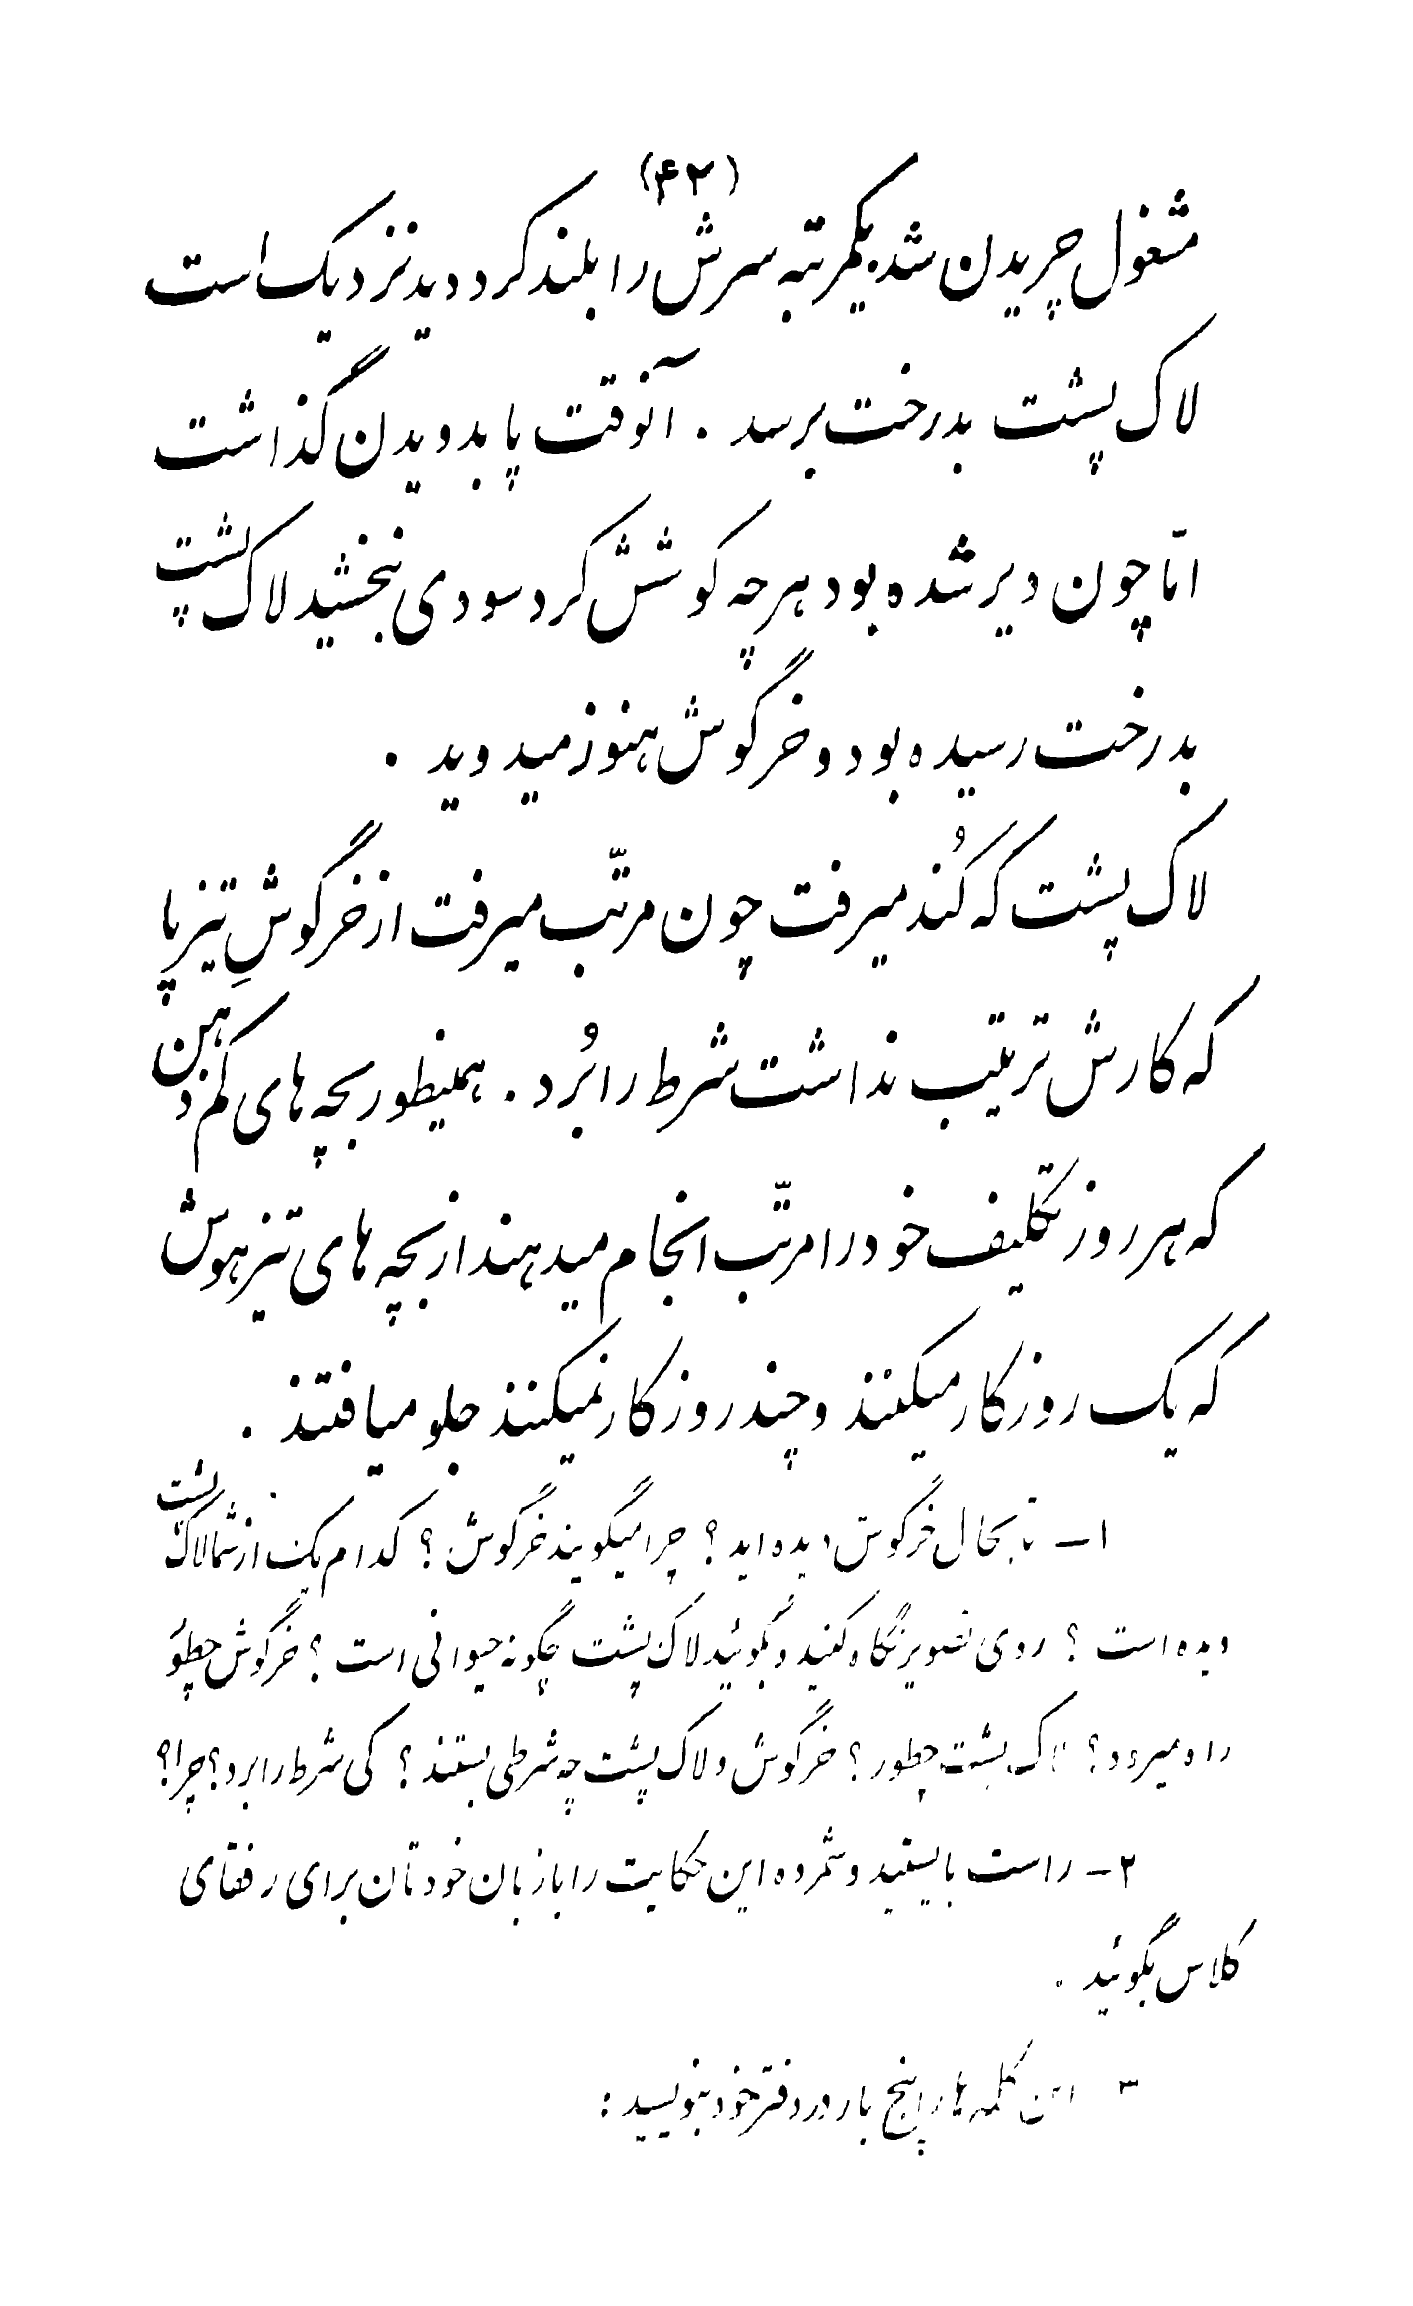 (۴۲)
مشغول چریدن شد. یکمرتبه سرش را بلند کرد دید نزدیک است
لاک پشت بدرخت برسد . آنوقت پا بدویدن گذاشت
امّا چون دیر شده بود هر چه کوشش کرد سودی نبخشید لاک پشت
بدرخت رسیده بود و خرگوش هنوز میدوید .
لاک پشت که کُند میرفت چون مرتّب میرفت از خرگوشِ تیزپا
که کارش ترتیب نداشت شرط را بُرد . همینطور بچه های کم ذهن
که هر روز تکلیف خود را مرتّب انجام میدهند از بچه های تیزهوش
که یک روز کار میکنند و چند روز کار نمیکنند جلو میافتند .
۱ــ تا بحال خرگوش دیده اید ؟ چرا میگویند خرگوش ؟ کدام یک از شما لاک پشت
دیده است ؟ روی تصویر نگاه کنید و بگوئید لاک پشت چگونه حیوانی است ؟ خرگوش چطور
راه میرود ؟ لاک پشت چطور ؟ خرگوش و لاک پشت چه شرطی بستند ؟ کی شرط را برد ؟ چرا ؟
۲ــ راست بایستید و شمرده این حکایت را با زبان خودتان برای رفقای
کلاس بگوئید .
۳ این کلمه ها را پنج بار در دفتر خود بنویسید :